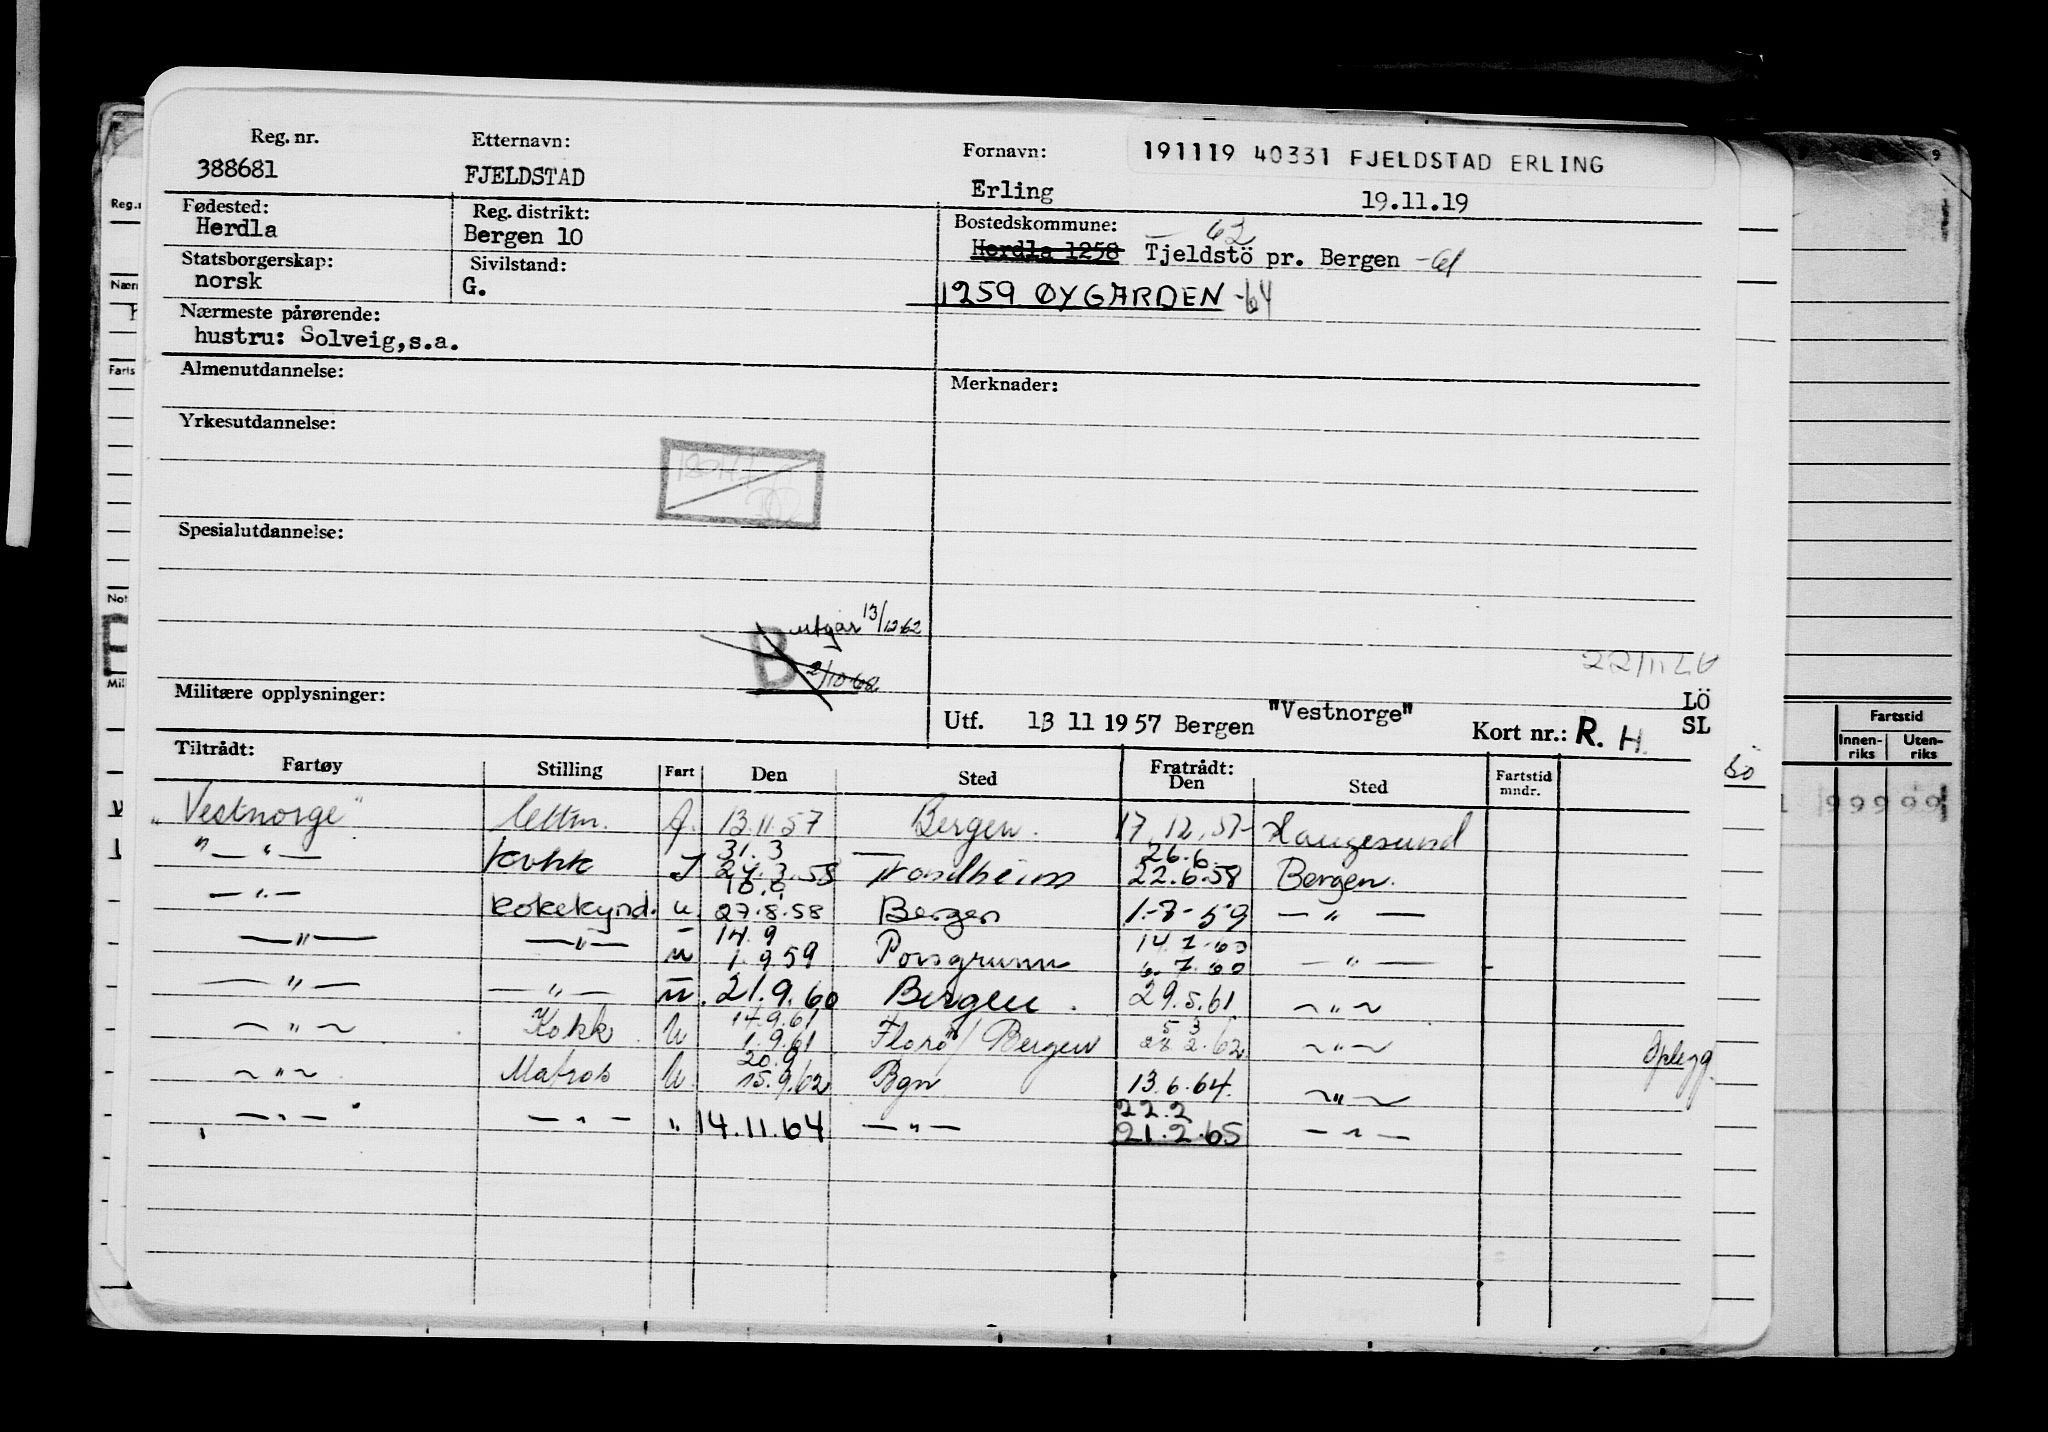 Reg. nr. Etternavn: Fornavn: 191119 40331 FJELDSTAD ERLING
388681 FJELDSTAD Erling 19.11.19
Fødested: Reg. distrikt: Bostedskommune: 62
Herdla Bergen 10 Herdla 1258 Tjeldstö pr. Bergen -61
Statsborgerskap: Sivilstand:
norsk G. 1259 ØYGARDEN -64
Nærmeste pårørende:
hustru: Solveig,s.a.
Almenutdannelse: Merknader:
Yrkesutdannelse:
Spesialutdannelse:
B utgår 13/12 62
2/10-68
Militære opplysninger:
LÖ
Utf. 13 11 1957 Bergen "Vestnorge" Kort nr.: R. H. SL
Tiltrådt: Fratrådt:
Fartøy Stilling Fart Den Sted Den Sted Fartstid mndr.
"Vestnorge" lettm. 13.11.57 Bergen. 17.12.57 Haugesund
31.3 26.6.
" — " — kokk I 24.3.58 Trondheim 22.6.58 Bergen.
— " — kokekynd. u. 27.8.58 Bergen 1.-7-59 — " —
14.9 14.7.60
— " — — " — u 1.9.59 Porsgrunn 6.7.60 — " —
— " — — " — u. 21.9.60 Bergen. 29.5.61 — " —
14.9.61 5 3
— " — Kokk U 1.9.61 Florø / Bergen 28.2.62 — " — Oplegg.
20.9
— " — Matros U 15.9.62 Bgn 13.6.64. — " —
22.2
— " — — " — " 14.11.64 — " — 21.2.65 — " —
Fartstid
Innen-
riks Uten-
riks